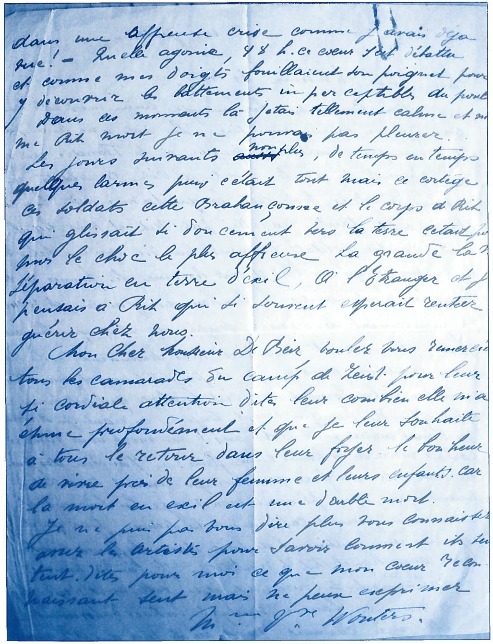 dans une affreuse crise comme j'avais deja
vue! - Quelle agonie, 48 h. ce coeur s'est débattu
et comme mes doigts fouillaient son poignet pour
y découvrir les battements imperceptibles du pouls
Dans ces moments là j'étais tellement calme et
me Rik mort je ne pouvais pas pleurer.
Les jours suivants non plus, de temps en temps
quelques larmes puis c'était tout mais ce cortège
ces soldats cette Brabançonne et le corps de Rik
qui glissait si doucement vers la terre cétait
moi le choc le plus affreuse La grande la
séparation en terre d'exil, à l'Étranger et je
pensais à Rik qui si souvent esperait rentrer
guérir chez nous.
Mon cher Monsieur De Beir voulez vous remercier
tous les camarades du camp de Zeist. pour leur
si cordiale attention dites leur combien elle m'a
émue profondéament et que je leur souhaite
à tous le retour dans leur foyer. le bonheur
de vivre près de leur femme et leurs enfants. car
la mort en exil est une double mort.
Je ne puis pas vous dire plus vous connaissez
assez les artistes pour savoir comment ils sen
tent. dites pour moi ce que mon coeur recon
naissant sent mais ne peux exprimer
Me Vve Wouters.